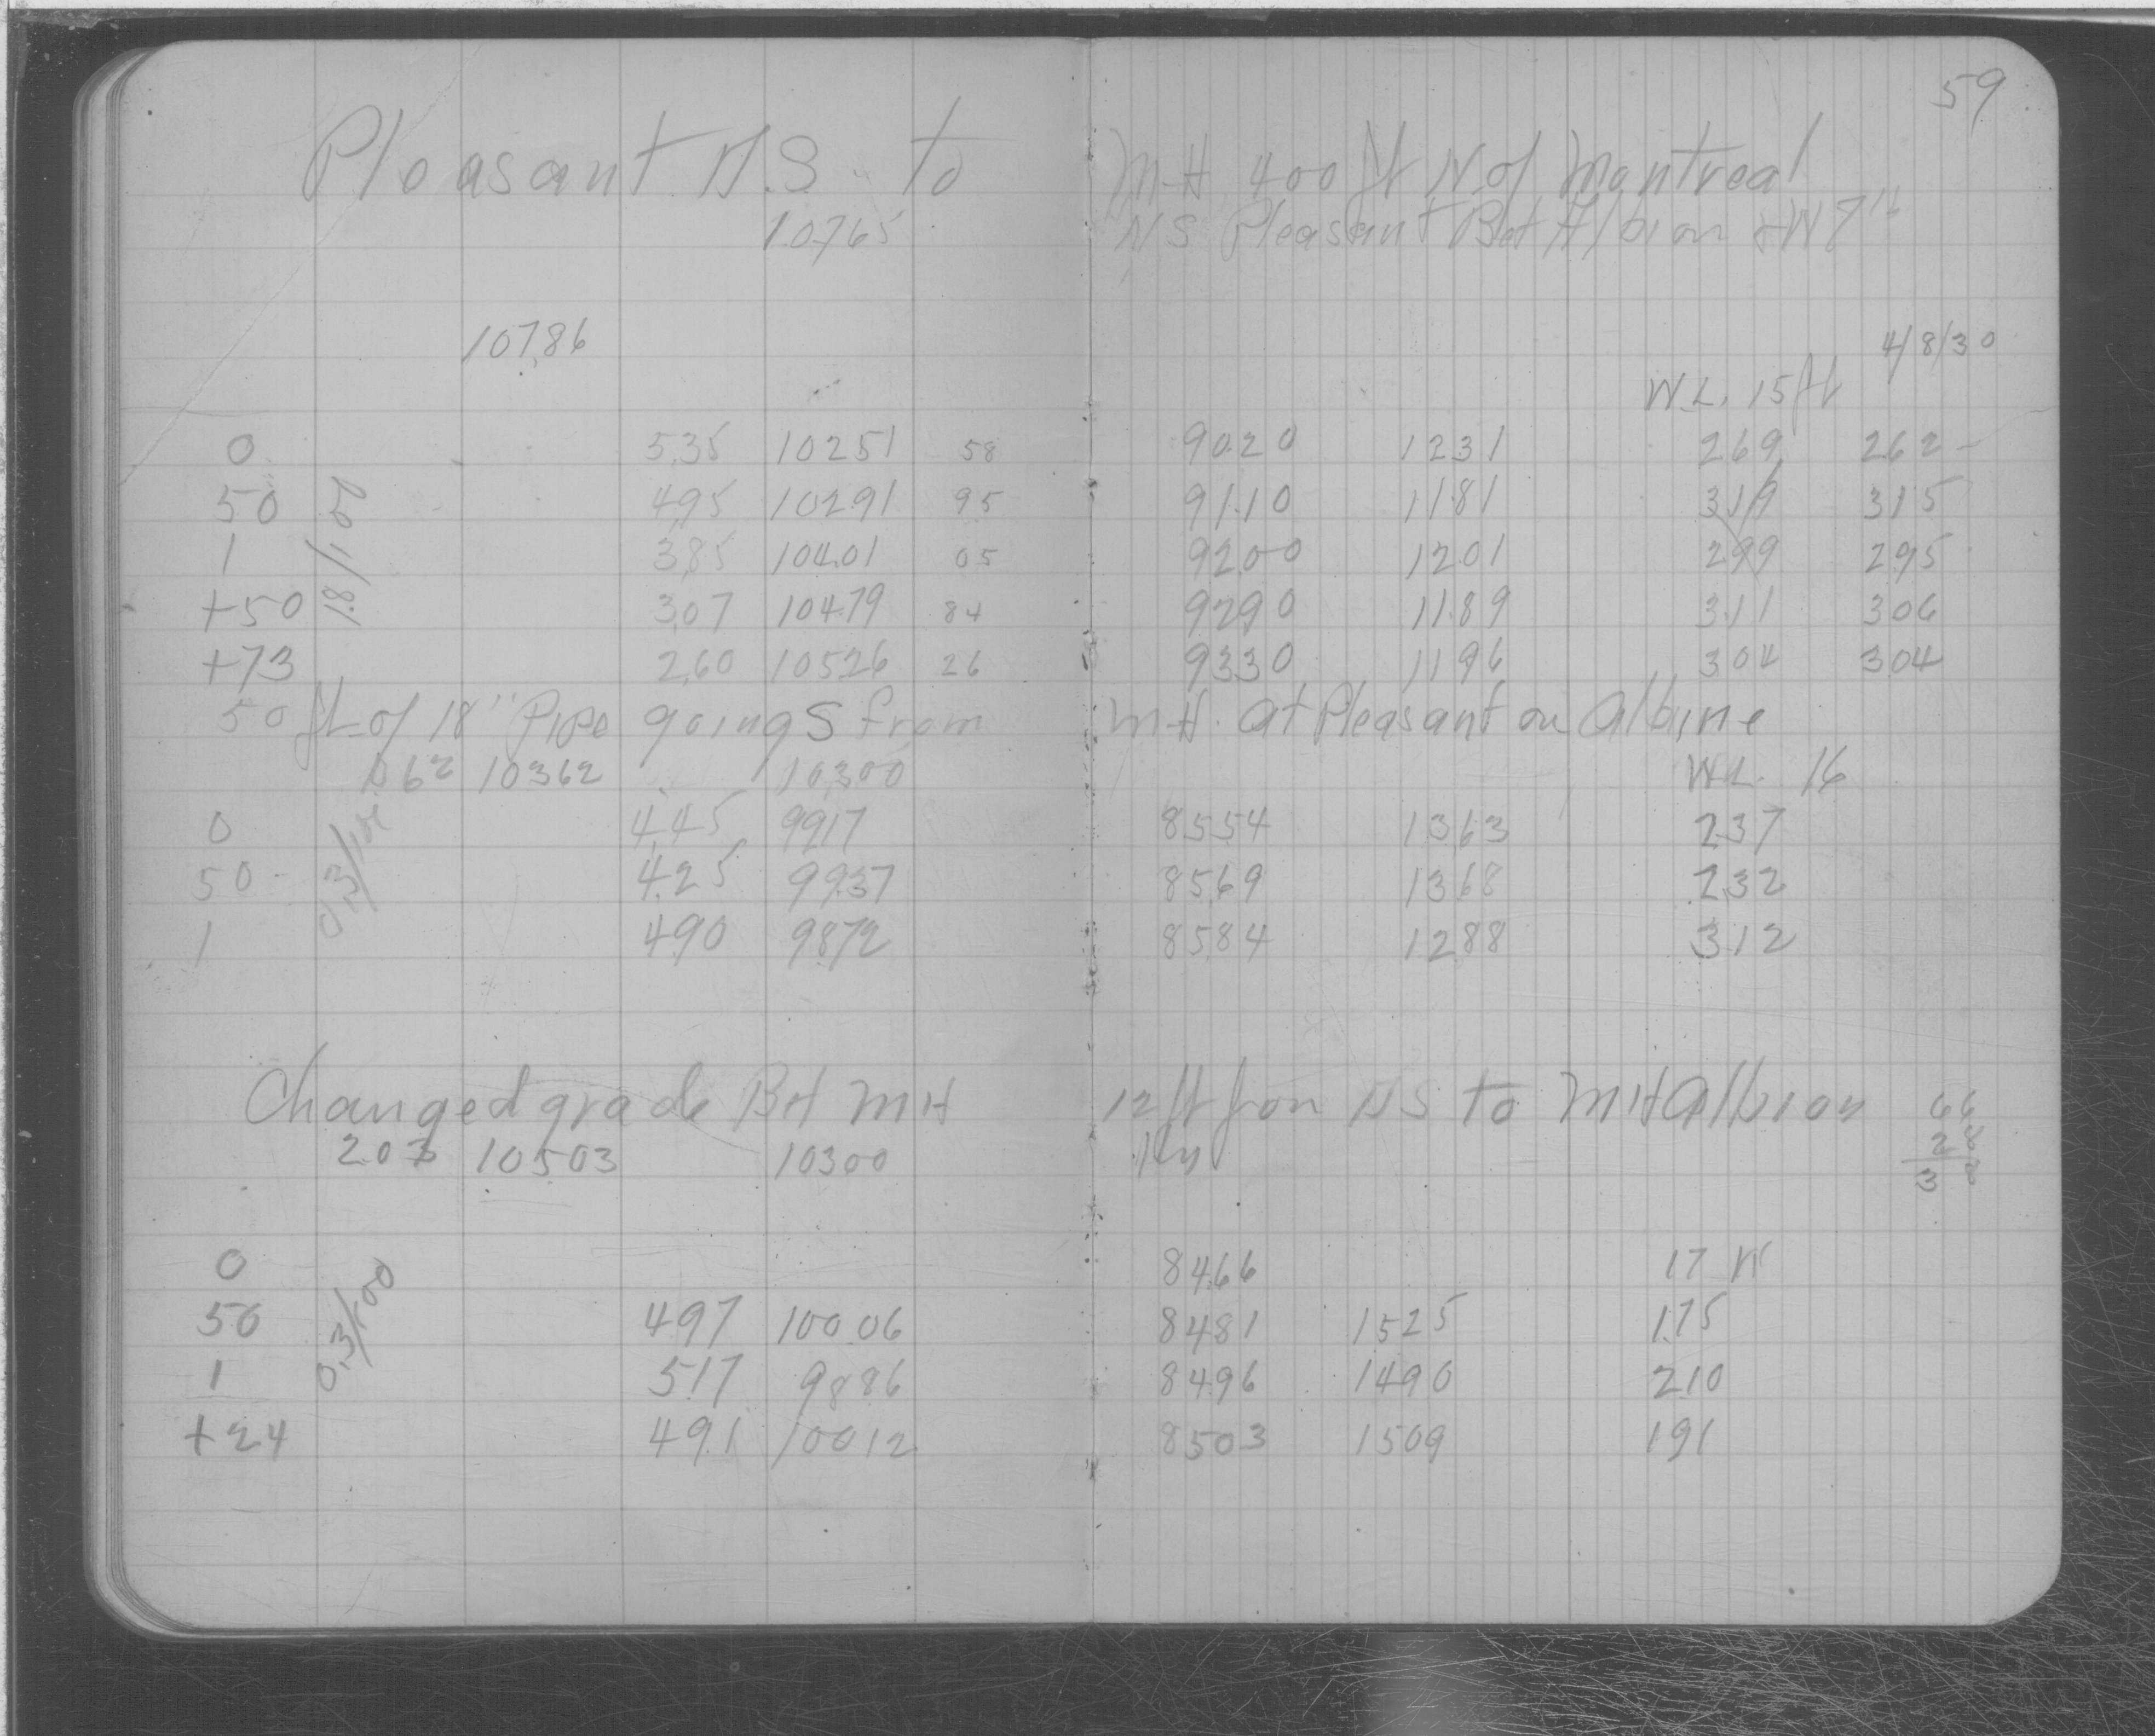 59
Pleasant N.S. to M.H 400 ft N. of Montreal
10765 N S Pleasant Bet Albion + W 7th
107.86 4/8/30
W.L. 15 ft
0 5.35 102.51 58 90.20 12.31 2.69 2.62 -
50 4.95 102.91 95 91.10 11.81 3.19 3.15
1 1.8/100 3.85 104.01 05 92.00 12.01 2.99 2.95
+50 3.07 104.79 84 92.90 11.89 3.11 3.06
+73 2.60 105.26 26 93.30 11.96 3.04 3.04
50 ft of 18" Pipe going S from M.H. at Pleasant on Albine
0.62 103.62 103.00 W.L. 16
0 4.45 99.17 85.54 13.63 2.37
50 0.3/100 4.25 99.37 85.69 13.68 2.32
1 4.90 98.72 85.84 12.88 3.12
Changed grade Bet M H 12 ft from N S to M H Albion 66
2.03 105.03 103.00 28
38
0 84.66 17 W
50 0.3/100 4.97 100.06 84.81 15.25 1.75
1 5.17 99.86 84.96 14.90 2.10
+24 4.91 100.12 85.03 15.09 1.91